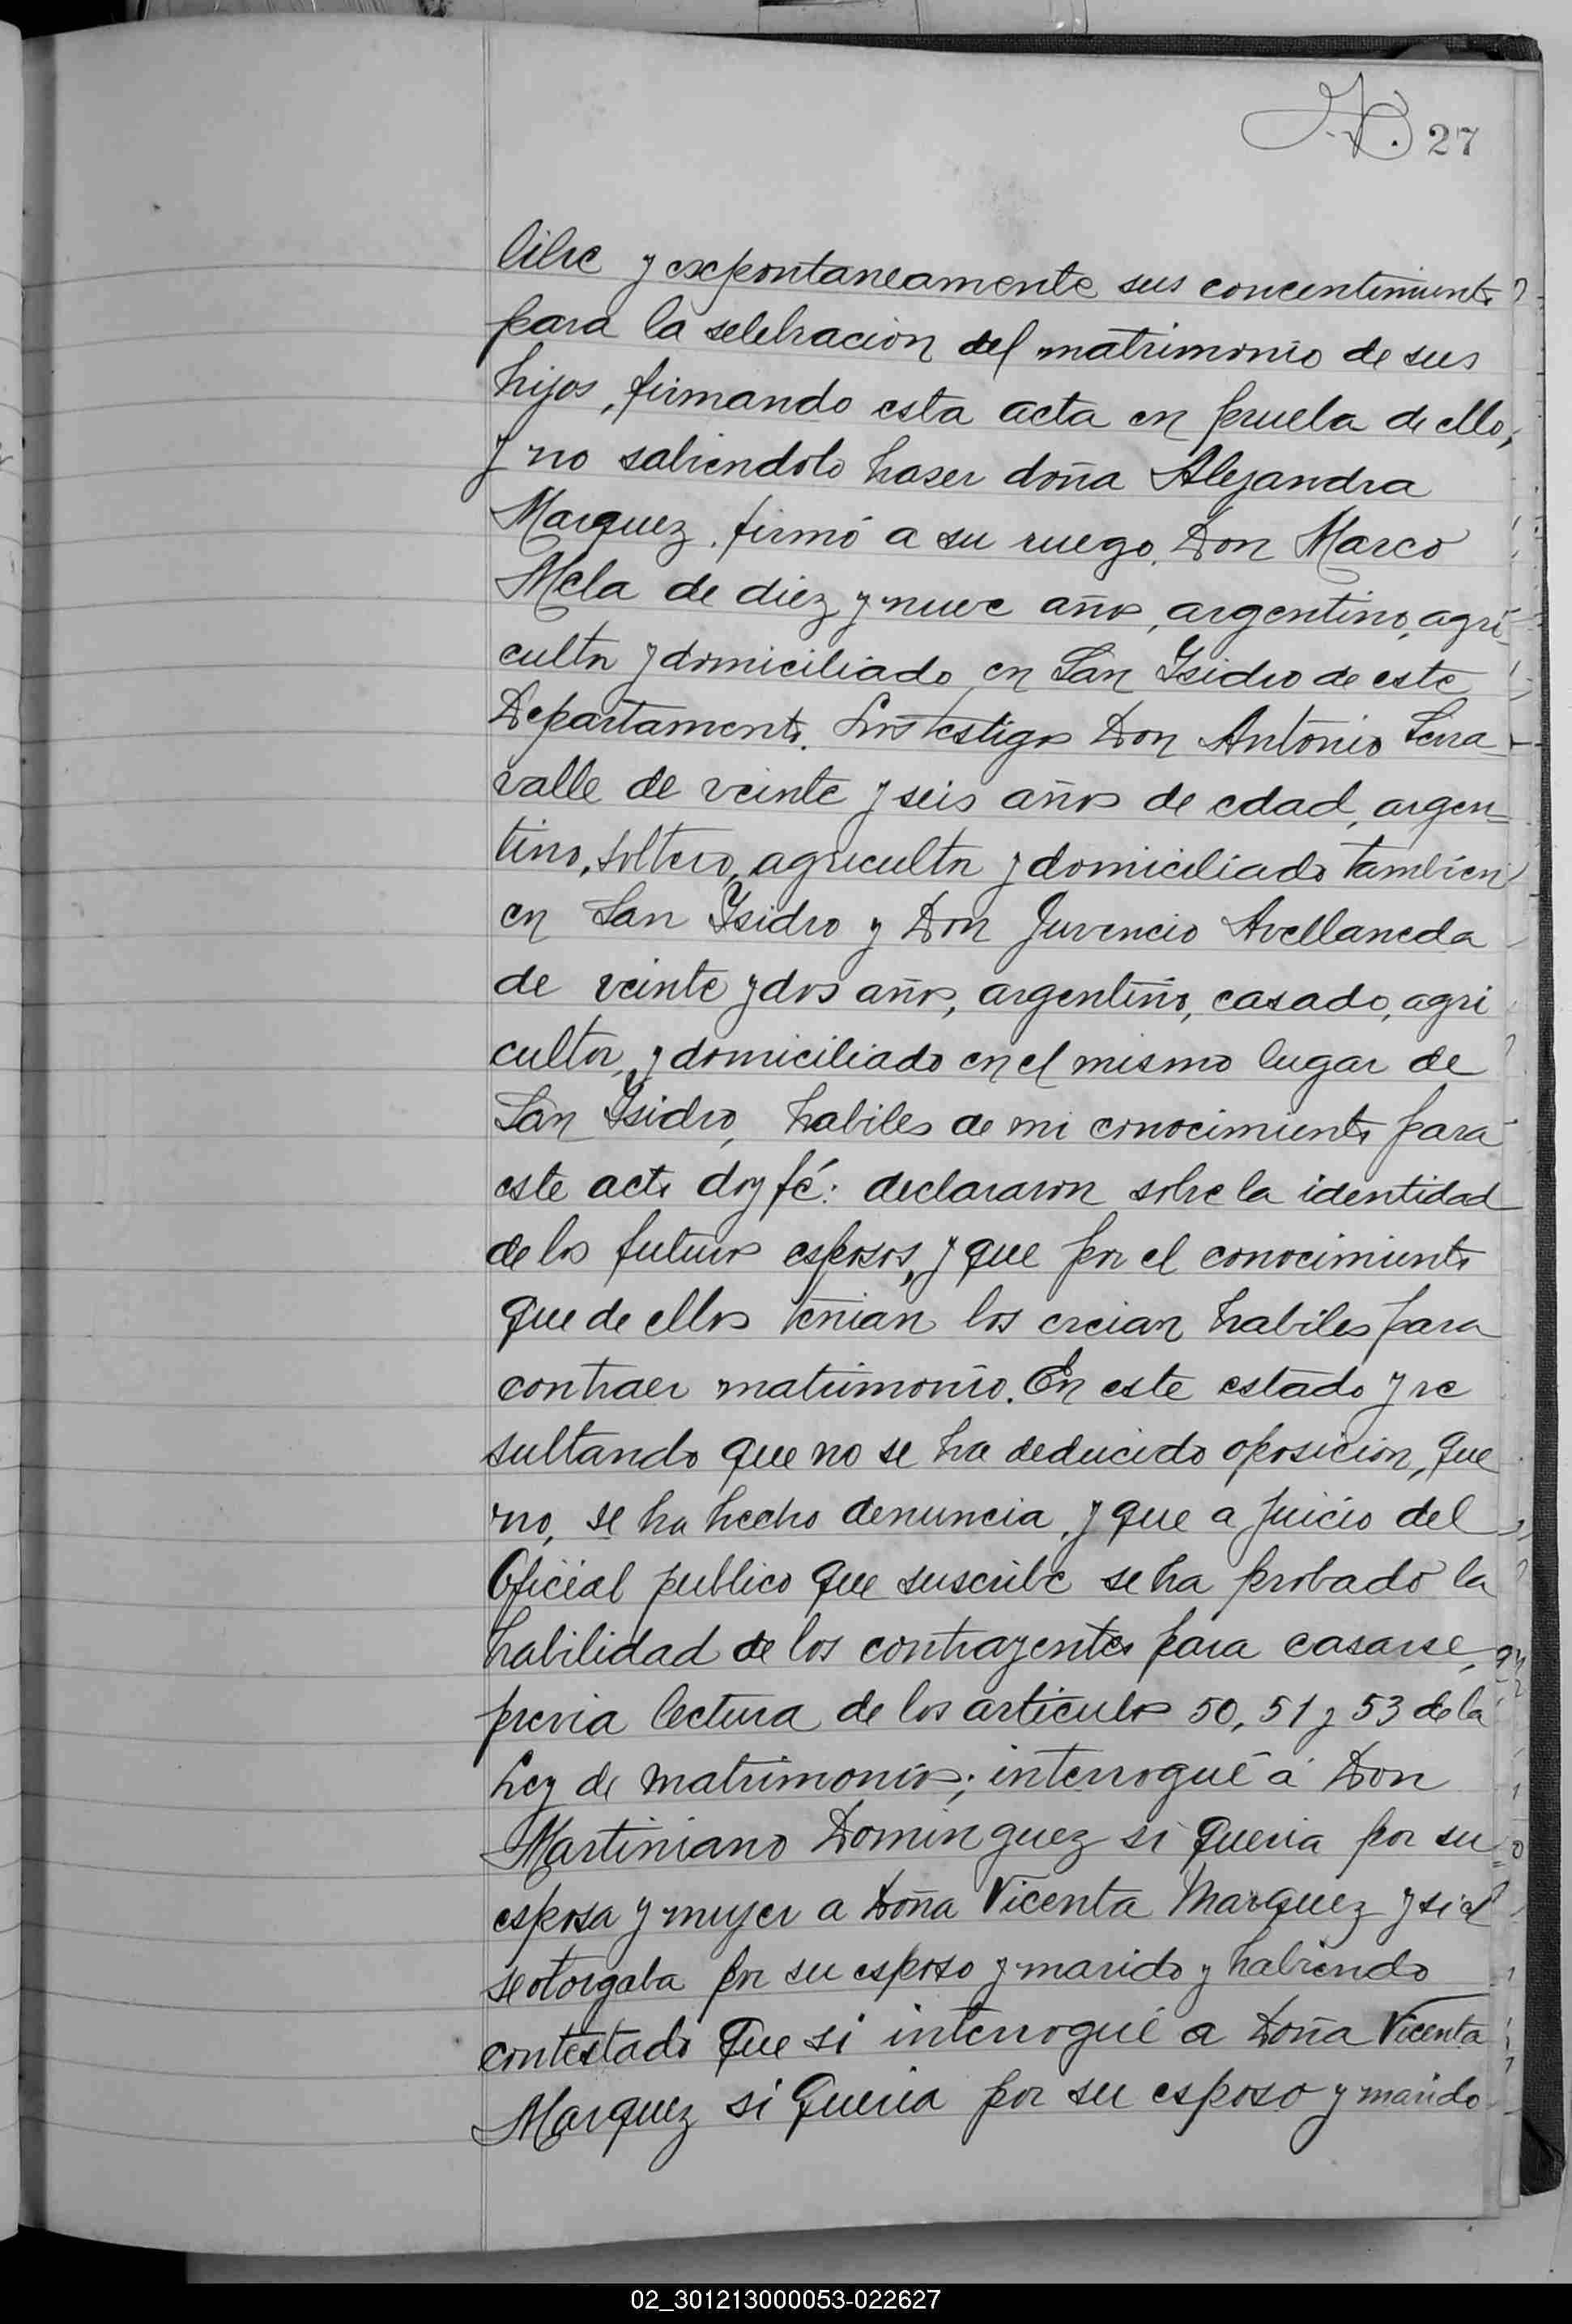 27
libre y expontaneamente sus concentimiento
para la selebracion del matrimonio de sus
hijos, firmando esta acta en prueba de ello,
y no sabiendolo haser doña Alejandra
Marquez, firmó a su ruego, Don Marco
Mela de diez y nueve años, argentino, agri
cultor y domiciliado en San Isidro de este
Departamento. Los testigos Don Antonio Serra
valle de veinte y seis años de edad, argen=
tino, soltero, agricultor y domiciliado tambien
en San Isidro y Don Juvencio Avellaneda
de veinte y dos años, argentino, casado, agri
cultor, y domiciliado en el mismo lugar de
San Isidro, habiles de mi conocimiento para
este acto doy fé: declararon sobre la identidad
de los futuros esposos, y que por el conocimiento
que de ellos tenian los creian habiles para
contraer matrimonio. En este estado y re
sultando que no se ha deducido oposicion, que
no, se ha hecho denuncia, y que a juicio del
Oficial publico que suscribe se ha probado la
habilidad de los contrayentes para casarse,
previa lectura de los articulos 50, 51 y 53 de la
Ley de matrimonios; interrogué á Don
Martiniano Dominguez si queria por su
esposa y mujer a Doña Vicenta Marquez y si el
se otorgaba por su esposo y marido y habiendo
contestado que si interrogué a Doña Vicenta
Marquez si queria por su esposo y marido
02_301213000053-022627